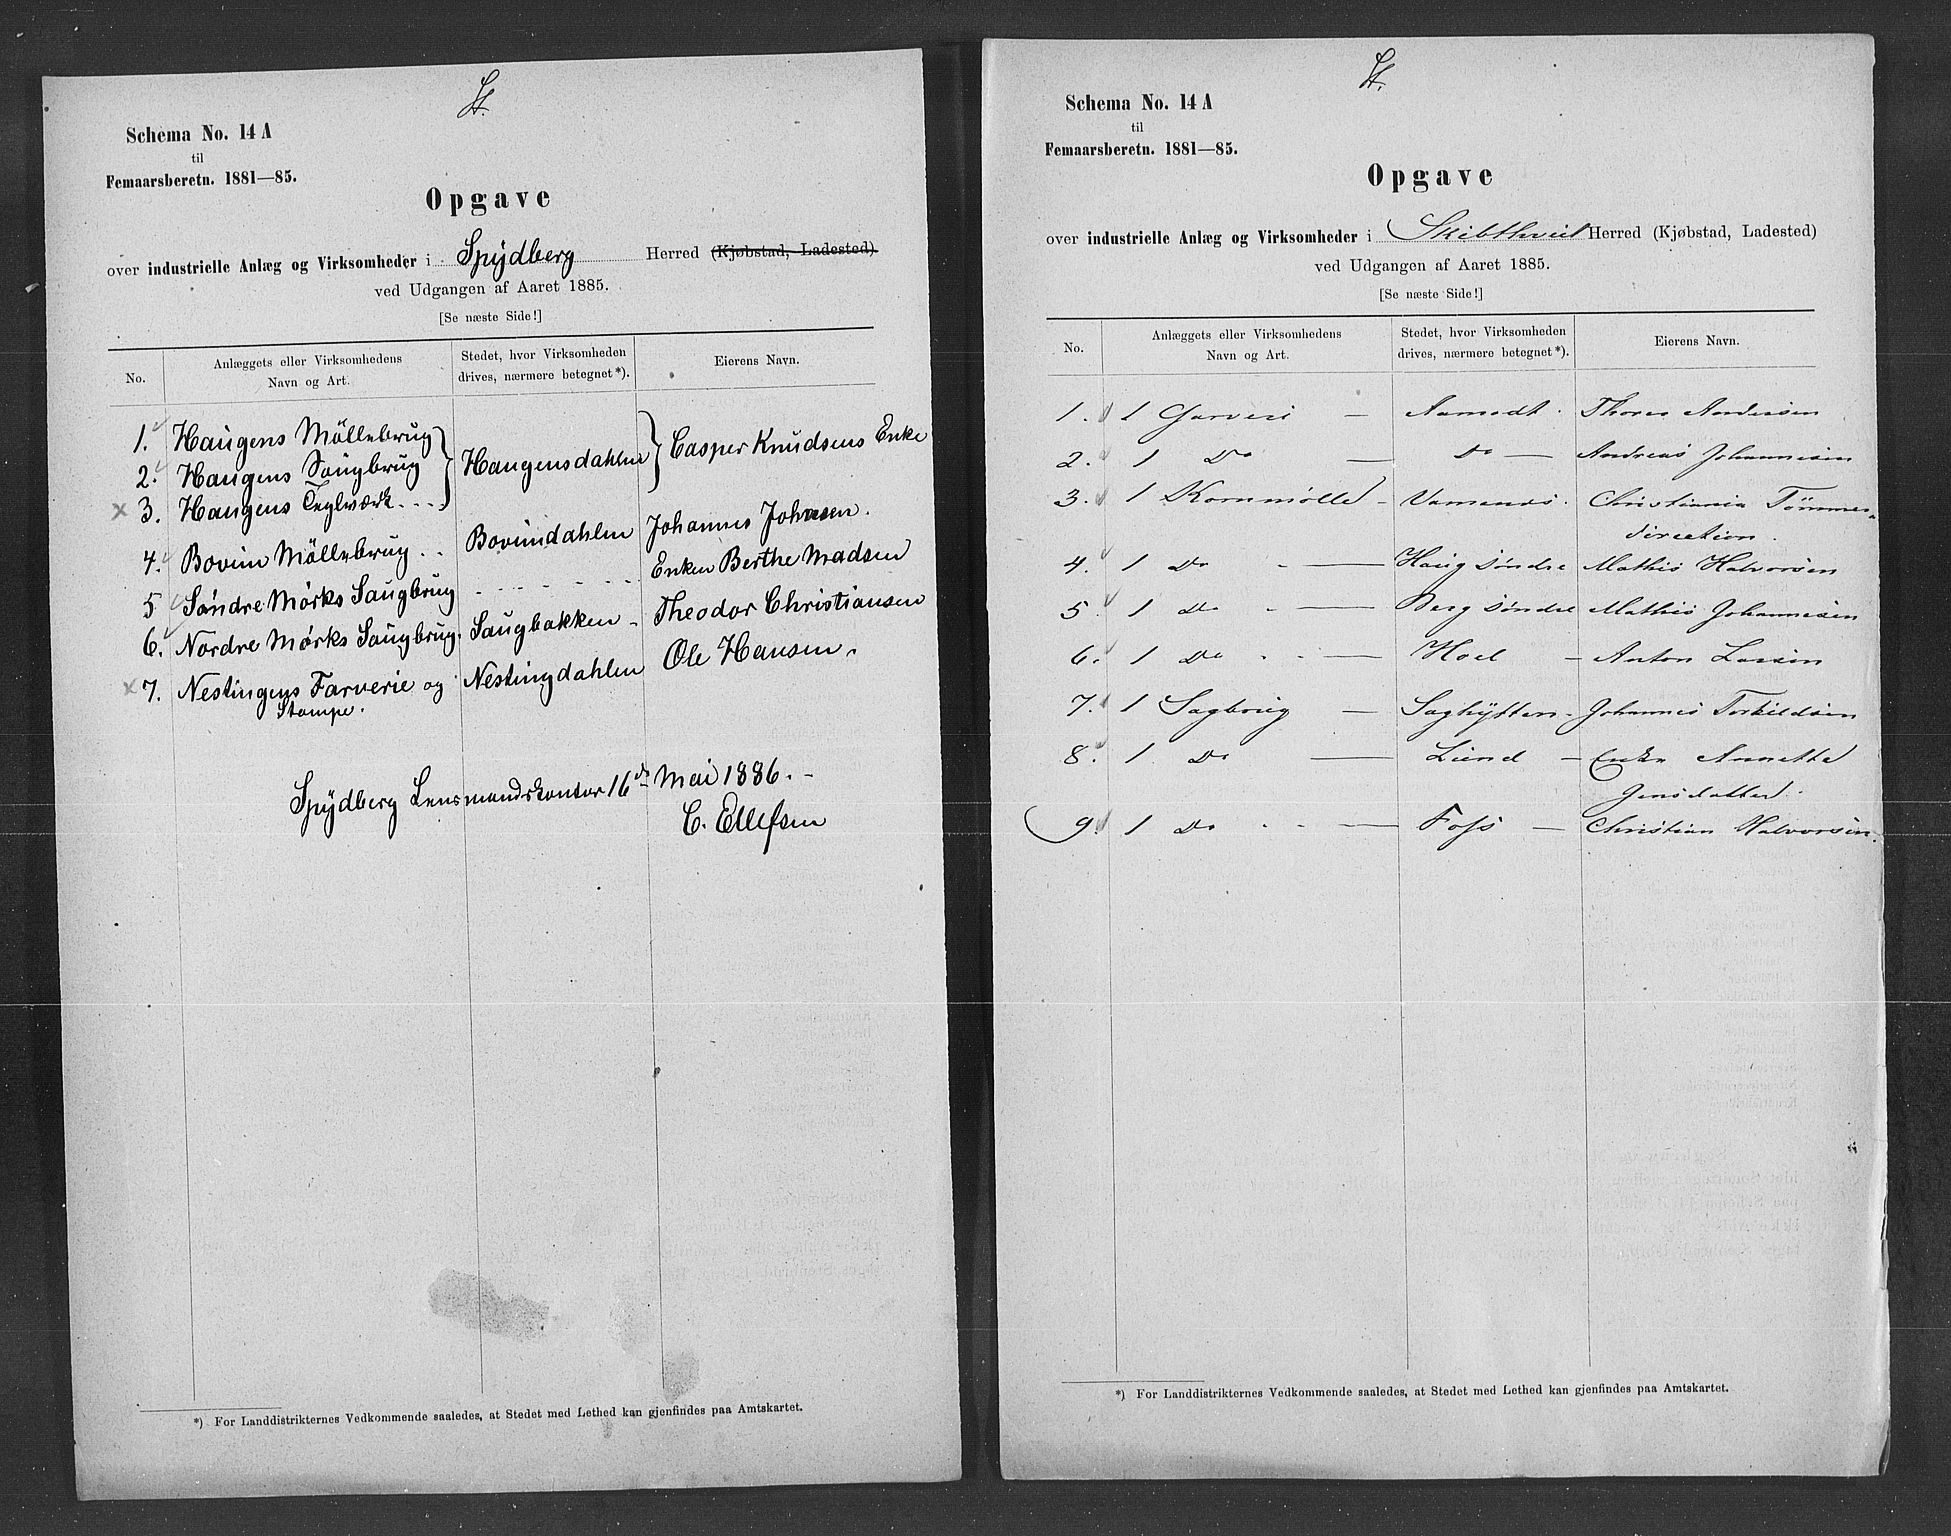 St.
Schema No. 14 A
til
Femaarsberetn. 1881—85.
Opgave
over industrielle Anlæg og Virksomheder i Spydberg Herred (Kjøbstad, Ladested)
ved Udgangen af Aaret 1885.
[Se næste Side!]
No. Anlæggets eller Virksomhedens Navn og Art. Stedet, hvor Virksomheden drives, nærmere betegnet*). Eierens Navn.
1. Haugens Möllebrug
2. Haugens Saugbrug Haugensdahlen Casper Knudsens Enke
3. Haugens Teglværk
4. Bovim Möllebrug Bovimdahlen Johannes Johnsen.
5 Söndre Mørks Saugbrug - - - - - Enken Berthe Madsen
6. Nordre Mørks Saugbrug. Saugbakken - Theodor Christiansen
7. Nestingens Farverie og Nestingdahlen Ole Hansen.
Stampe.
Spydberg Lensmandskontor 16de Mai 1886.
C. Ellefsen
*) For Landdistrikternes Vedkommende saaledes, at Stedet med Lethed kan gjenfindes paa Amtskartet.
St.
Schema No. 14 A
til
Femaarsberetn. 1881—85.
Opgave
over industrielle Anlæg og Virksomheder i Skibthveit Herred (Kjøbstad, Ladested)
ved Udgangen af Aaret 1885.
[Se næste Side!]
No. Anlæggets eller Virksomhedens Navn og Art. Stedet, hvor Virksomheden drives, nærmere betegnet*). Eierens Navn.
1. 1 Garveri — Aamodt. Thores Andersen
2. 1 Do — Do — Andreas Johannesen
3. 1 Kornmølle - Vamenæs. Christiania Tømmer-
direction.
4. 1 Do — Haug søndre Mathis Halvorsen
5. 1 Do — Berg søndre Mathis Johannesen
6. 1 Do — Hoel — Anton Larsen
7. 1 Sagbrug — Saghytten - Johannes Torkildsen
8. 1 Do — Lund — Enke Annette
Jensdatter.
9. 1 Do — Foss — Christian Halvorsen.
*) For Landdistrikternes Vedkommende saaledes, at Stedet med Lethed kan gjenfindes paa Amtskartet.